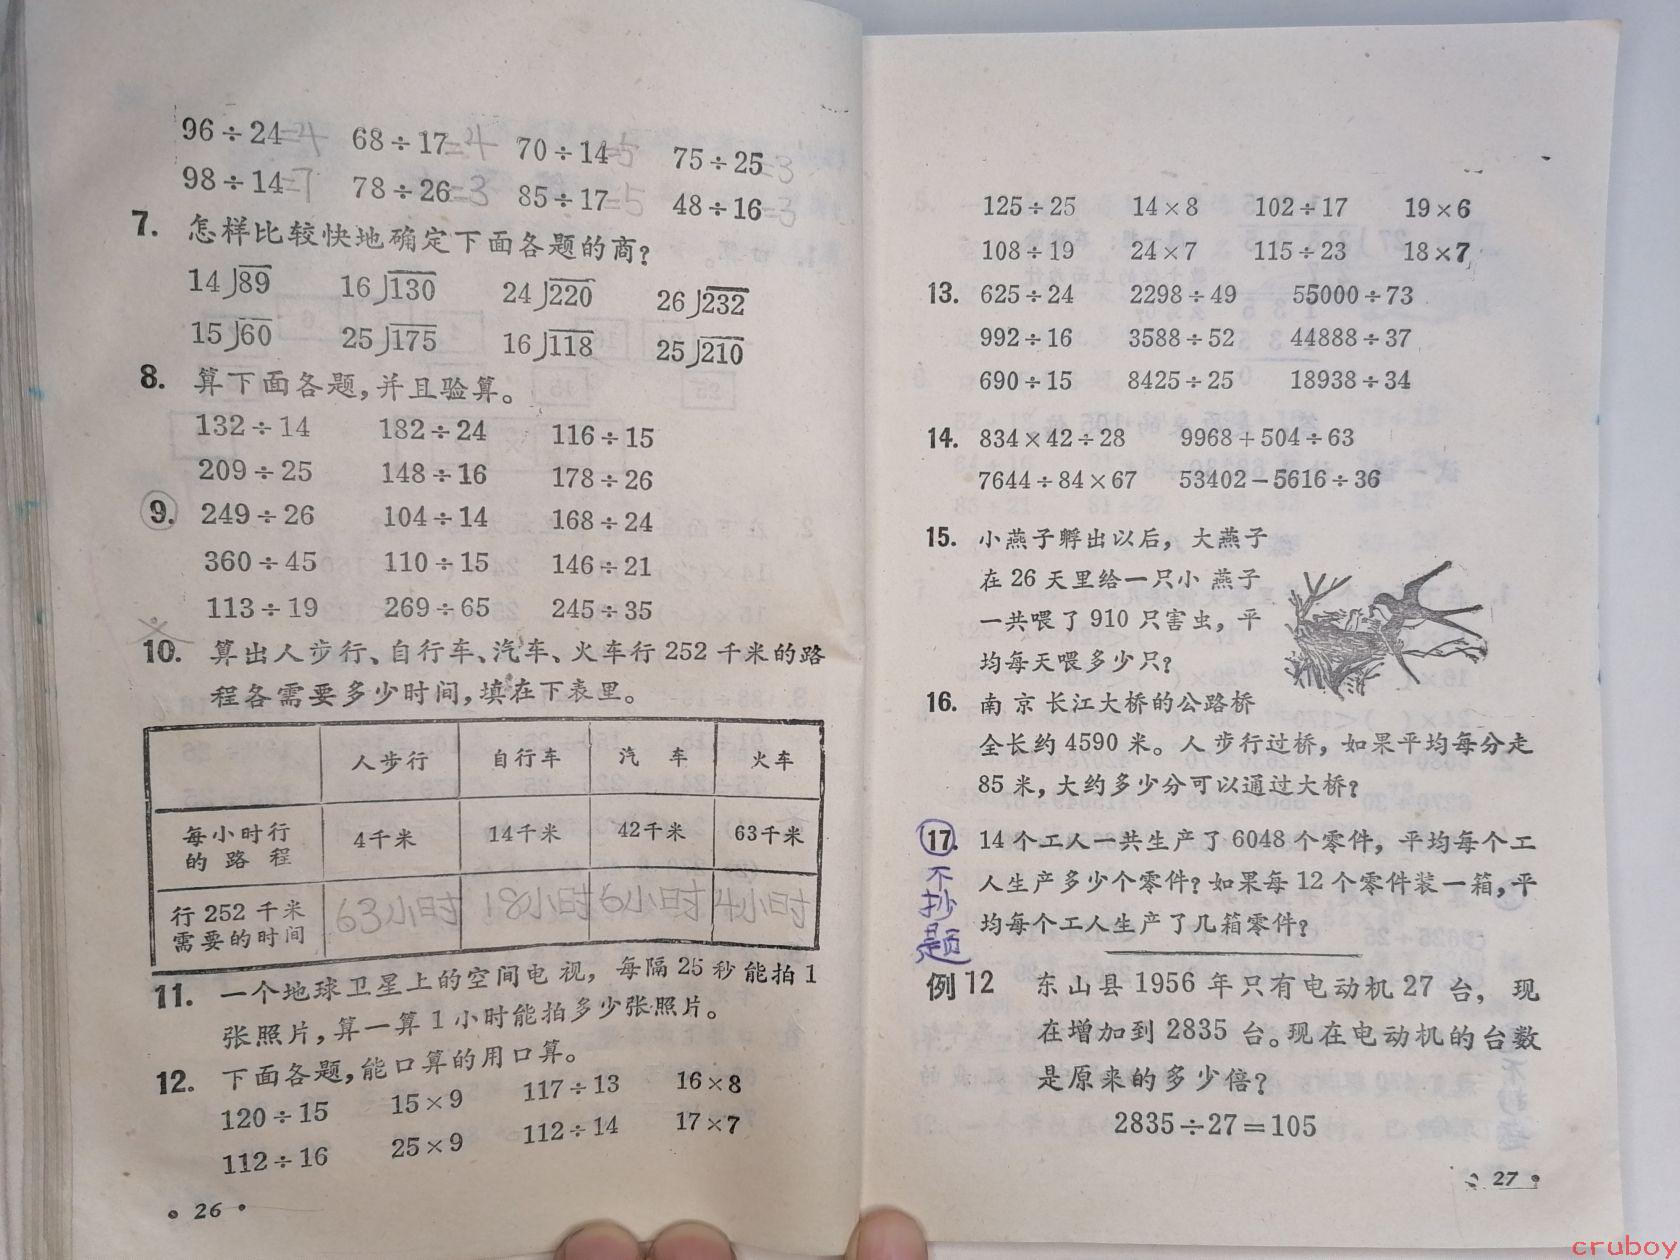 96÷24=4 68÷17=4 70÷14=5 75÷25=3
98÷14=7 78÷26=3 85÷17=5 48÷16=3
7. 怎样比较快地确定下面各题的商?
14)89 16)130 24)220 26)232
15)60 25)175 16)118 25)210
8. 算下面各题,并且验算。
132÷14 182÷24 116÷15
209÷25 148÷16 178÷26
9. 249÷26 104÷14 168÷24
360÷45 110÷15 146÷21
113÷19 269÷65 245÷35
10. 算出人步行、自行车、汽车、火车行 252 千米的路
程各需要多少时间,填在下表里。
人步行 自行车 汽 车 火车
每小时行
的 路 程
4千米 14千米 42千米 63千米
行 252 千米
需要的时间
63小时 18小时 6小时 4小时
11. 一个地球卫星上的空间电视, 每隔 25 秒能拍 1
张照片,算一算 1 小时能拍多少张照片。
12. 下面各题,能口算的用口算。
120÷15 15×9 117÷13 16×8
112÷16 25×9 112÷14 17×7
• 26 •
125÷25 14×8 102÷17 19×6
108÷19 24×7 115÷23 18×7
13. 625÷24 2298÷49 55000÷73
992÷16 3588÷52 44888÷37
690÷15 8425÷25 18938÷34
14. 834×42÷28 9968+504÷63
7644÷84×67 53402-5616÷36
15. 小燕子孵出以后, 大燕子
在 26 天里给一只小 燕子
一共喂了 910 只害虫, 平
均每天喂多少只?
16. 南 京 长江大桥的公路桥
全长约 4590 米。人 步行过桥, 如果平均每分走
85 米, 大约多少分可以通过大桥?
17. 14 个工人一共生产了 6048 个零件, 平均每个工
人生产多少个零件? 如果每 12 个零件装一箱, 平
均每个工人生产了几箱零件?
不
抄
题
例 12 东山县 1956 年只有电动机 27 台, 现
在增加到 2835 台。现在电动机的台数
是原来的多少倍?
2835÷27=105
• 27 •
cruboy